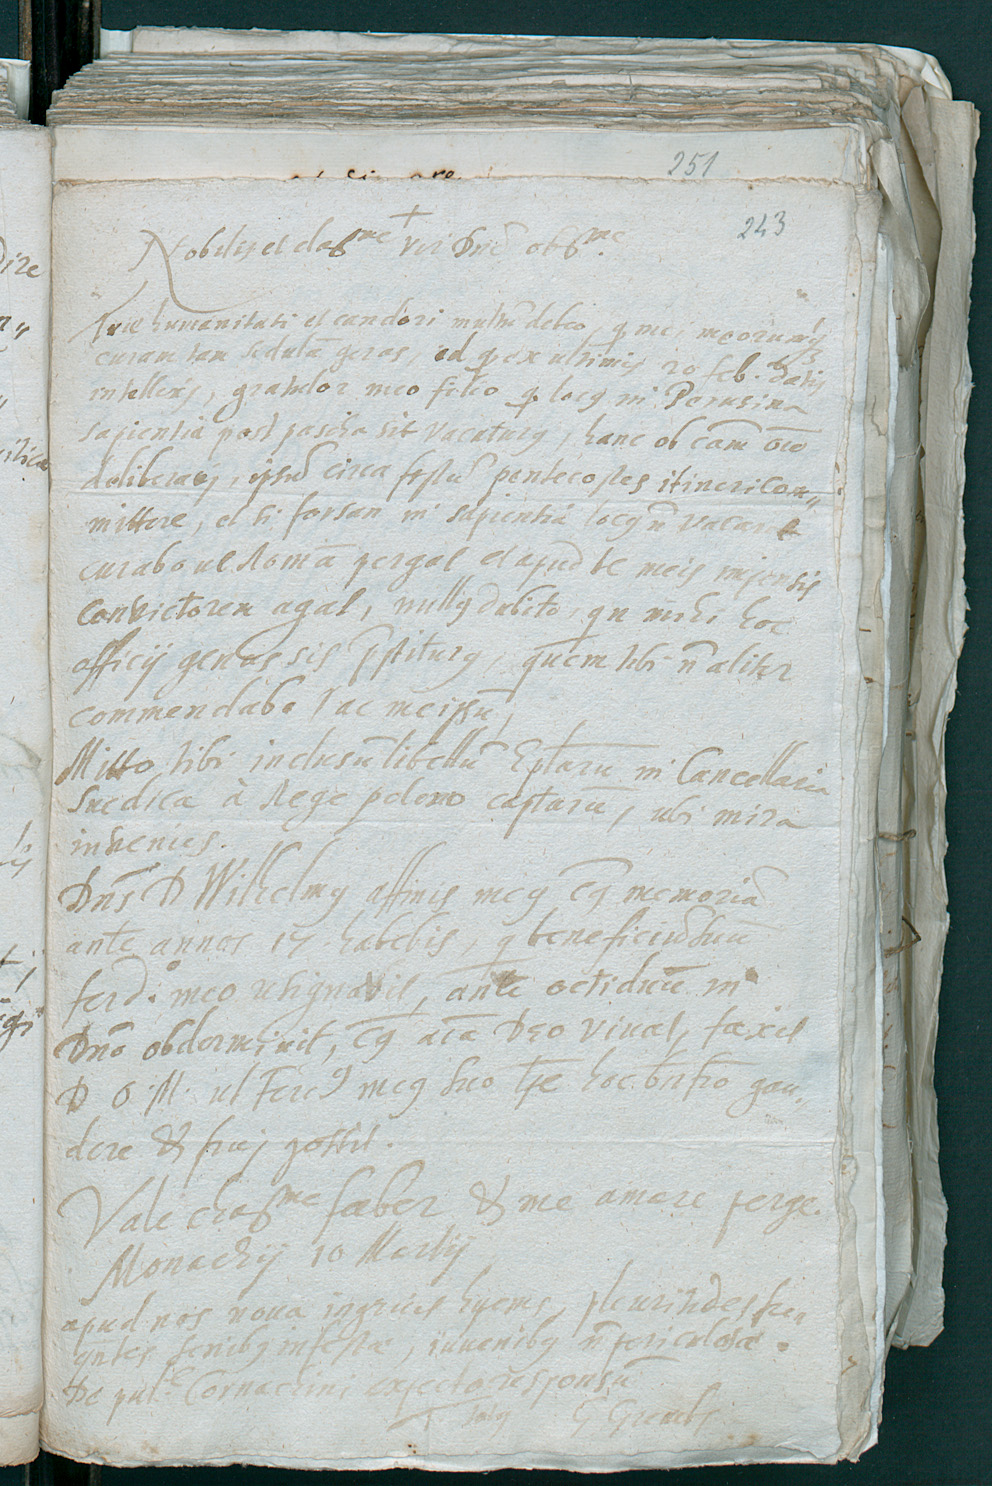 251
243
+
Nobilis et claris^me vir Dne obs^me.
Tuae humanitati et candori multu debeo, q mei meorumq
curam tam sedula geras, ed q ex ultimis 20 feb. datis
intellexi, gratulor meo filio q locq in Perusina
sapientia post pascha sit vacaturq, hanc ob cam oio
deliberavj, ipsu circa festu pentecostes itineri com„
mittere, et si forsan in sapientia locq n vacaret
curabo ut Roma pergat et apud te meis impensis
convictorem agat, nullq dubito, qn mihi hoc
officij genus sis pstiturq, quem tibi n aliter
commendabo / ac meipsu,
Mitto tibi inclusu libellu Eptaru in Cancellaria
Suedica à Rege polono captaru, ubi mira
invenies.
Dns D Wilhelmq affinis meq cq memoria
ante annos 17. habebis, q beneficiu suu
ferd.º meo resignavit, ante octiduu in
Dno obdormivit, cq aia Deo vivat, faxit
D O. M. ut Ferd^9 meq suo tpe hoc bnfio gau„
dere & frui possit.
Vale claris^me faber & me amare perge.
Monachij 10 Martij
apud nos nova ingruit hyems, pleuritides fre„
qntes senibq infestae, iuvenibq n periculosae.
De pul.^e Cornachini expecto responsu
Totq G Grembs